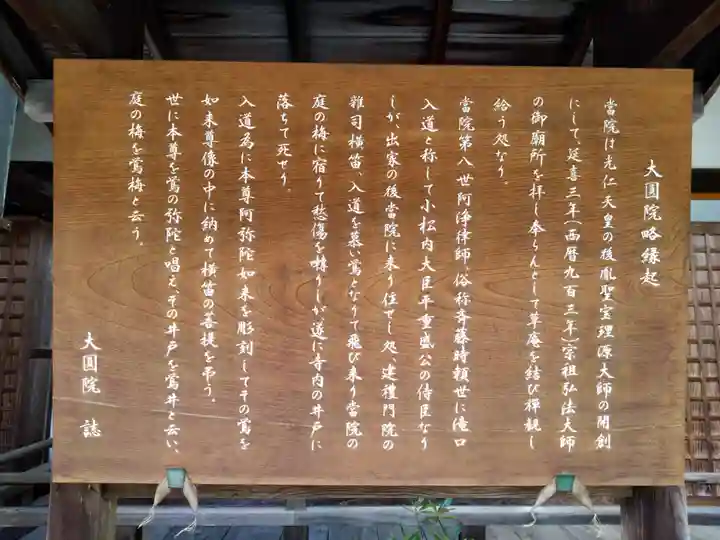 大圓院略縁起
當院は光仁天皇の後胤聖宝理源大師の開創
にして、延喜三年(西暦九百三年)宗祖弘法大師
の御廟所を拝し奉らんとして草庵を結び禅観し
給う処なり。
當院第八世阿浄律師、俗称斉藤時頼世に滝口
入道と称して小松内大臣平重盛公の侍臣なり
しが、出家の後當院に来り住せし処、建禮門院の
雑司横笛、入道を慕い鶯となりて飛び来り當院の
庭の梅に宿りて悲傷を囀りしが遂に寺内の井戸に
落ちて死せり。
入道為に本尊阿弥陀如来を彫刻してその鶯を
如来尊像の中に納めて横笛の菩提を弔う。
世に本尊を鶯の弥陀と唱え、その井戸を鶯井と云い、
庭の梅を鶯梅と云う。
大圓院 誌